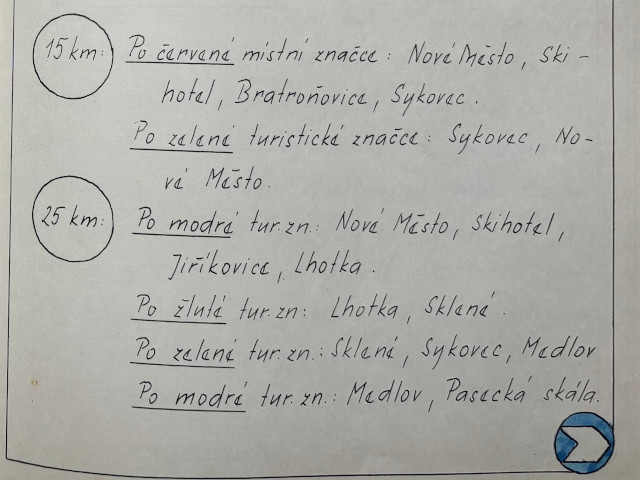 15 km: Po červené místní značce: Nové Město, Ski-
hotel, Bratroňovice, Sykovec.
Po zelené turistické značce: Sykovec, No-
vé Město.
25 km: Po modré tur. zn.: Nové Město, Skihotel,
Jiříkovice, Lhotka.
Po žluté tur. zn: Lhotka, Sklené.
Po zelené tur. zn.: Sklené, Sykovec, Medlov
Po modré tur. zn.: Medlov, Pasecká skála.